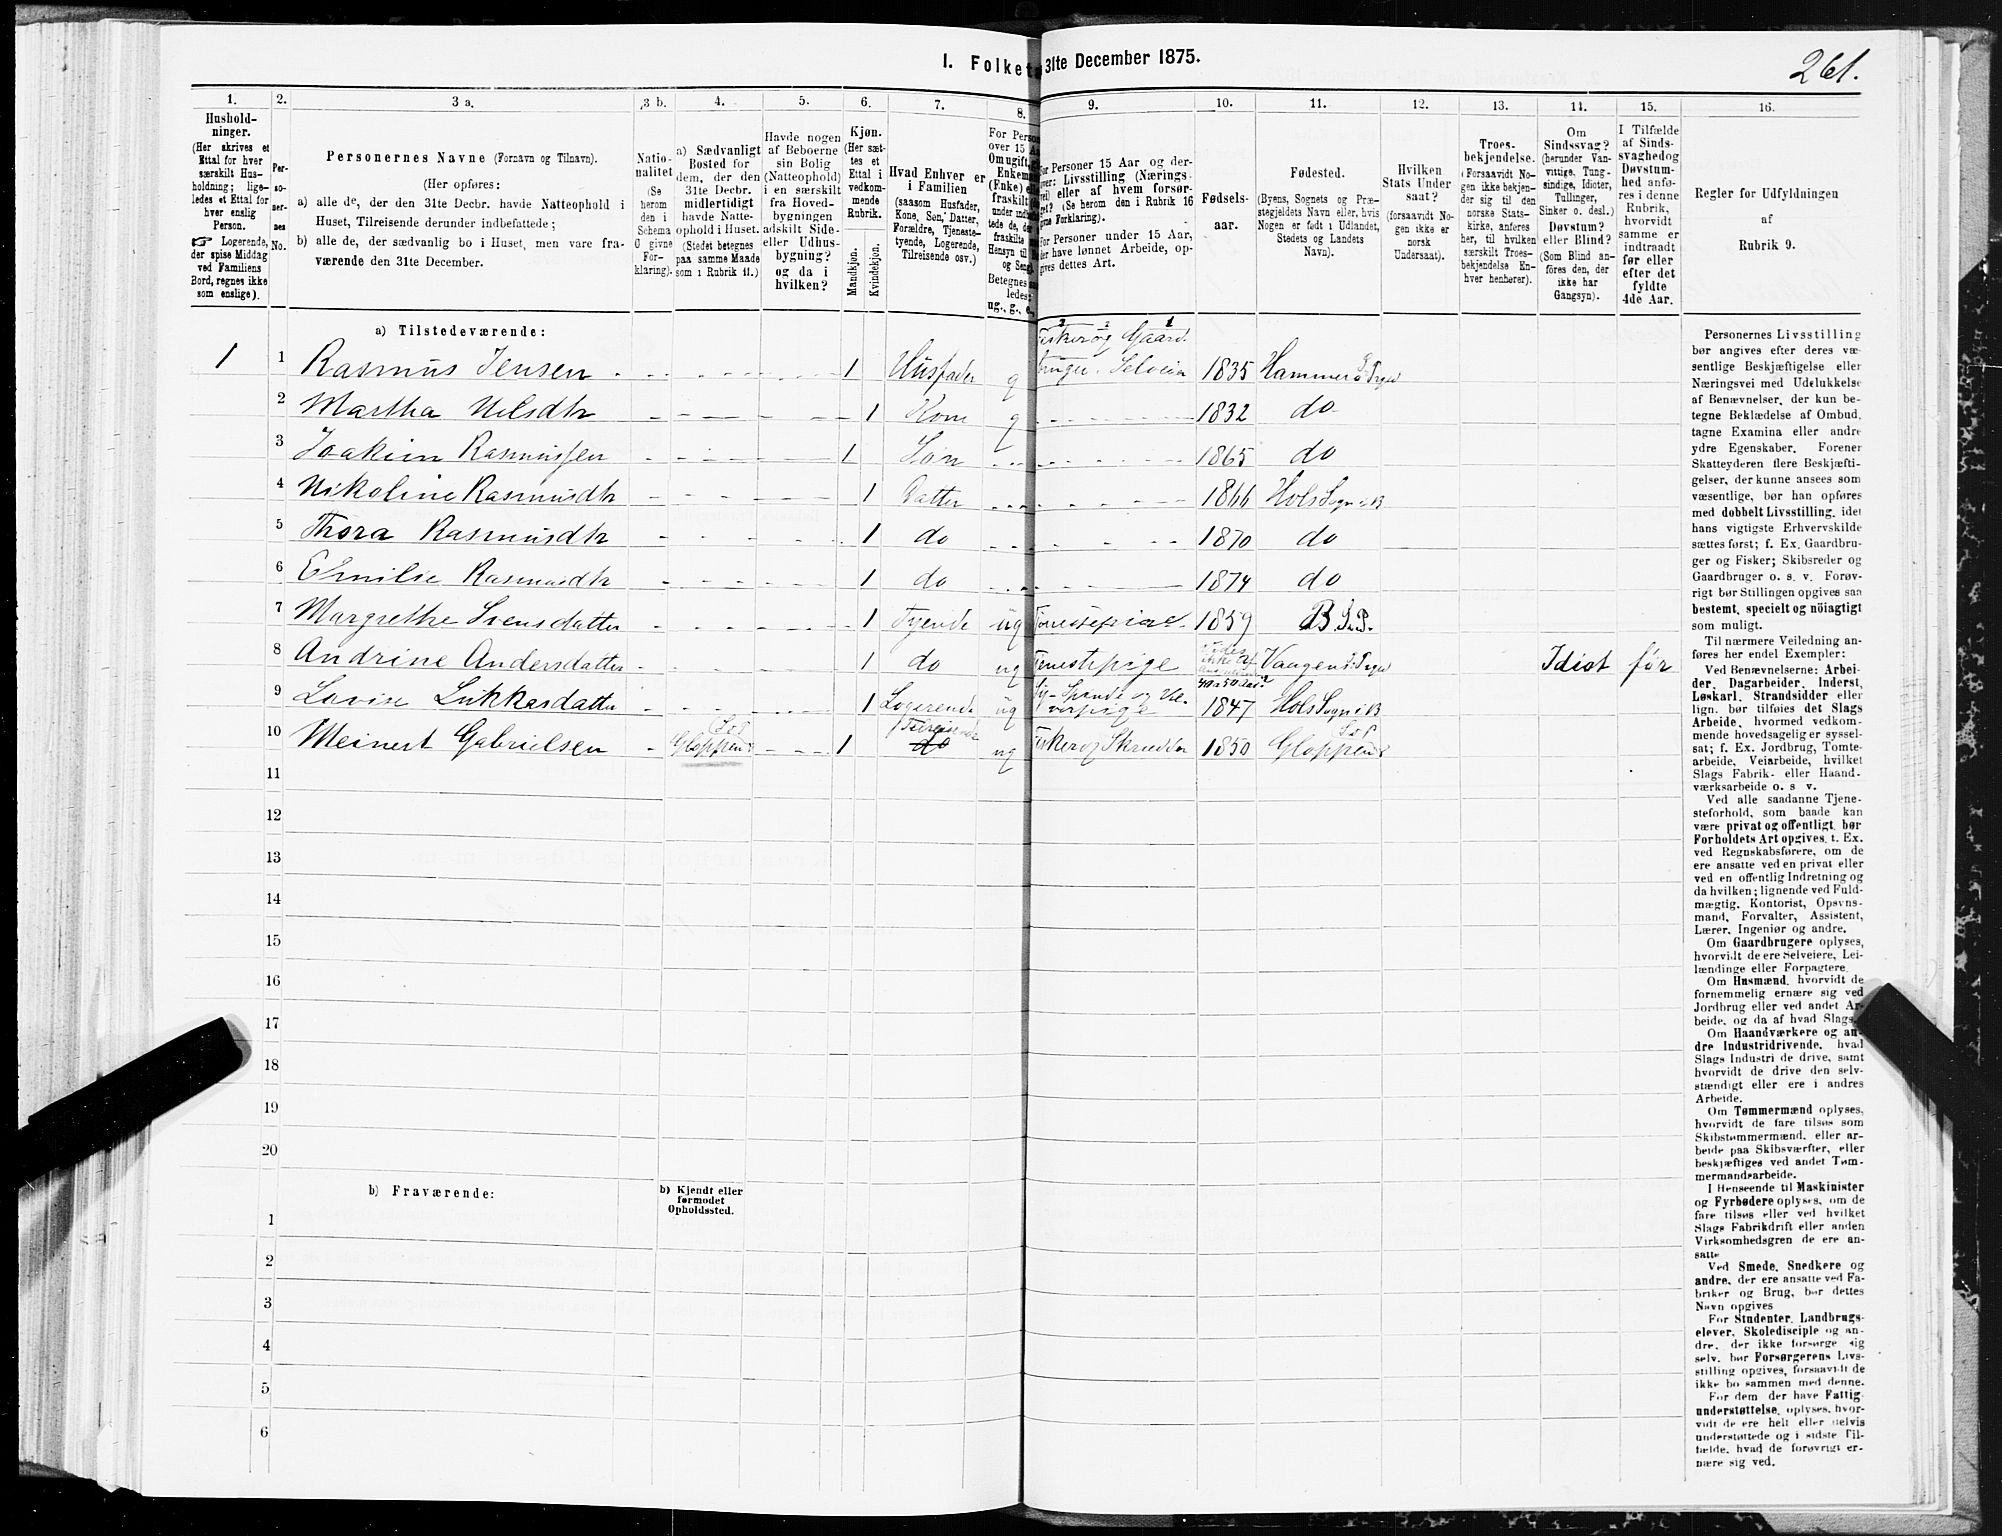 I. Folket 31te December 1875.
261.
1. 2. 3 a. 3 b. 4. 5. 6. 7. 8. 9. 10. 11. 12. 13. 14. 15. 16.
Hushold-
ninger.
(Her skrives et
Ettal for hver
særskilt Hus-
holdning; lige-
ledes et Ettal for
hver enslig
Person.
☞ Logerende,
der spise Middag
ved Familiens
Bord, regnes ikke
som enslige).
Per-
so-
ner-
nes
No.
Personernes Navne (Fornavn og Tilnavn).
(Her opføres:
a) alle de, der den 31te Decbr. havde Natteophold i
Huset, Tilreisende derunder indbefattede;
b) alle de, der sædvanlig bo i Huset, men vare fra-
værende den 31te December.
Natio-
nalitet
(Se
herom
den i
Schema
O givne
For-
klaring).
a) Sædvanligt
Bosted for
dem, der den
31te Decbr.
midlertidigt
havde Natte-
ophold i Huset.
(Stedet betegnes
paa samme Maade
som i Rubrik 11.)
Havde nogen
af Beboerne
sin Bolig
(Natteophold)
i en særskilt
fra Hoved-
bygningen
adskilt Side-
eller Udhus-
bygning?
og da i
hvilken?
Kjøn.
(Her sæt-
tes et
Ettal i
vedkom-
mende
Rubrik.
Mandkjøn.
Kvindekjøn.
Hvad Enhver er
i Familien
(saasom Husfader,
Kone, Søn, Datter,
Forældre, Tjeneste-
tyende, Logerende,
Tilreisende osv.)
For Perso
over 15 A
Om ugift,
Enkema
(Enke) el
fraskilt
under indb
tede de, de
fraskilte
Hensyn til
og Seng.
Betegnes sa
ledes:
ug., g., e.,
For Personer 15 Aar og der-
over: Livsstilling (Nærings-
vei) eller af hvem forsør-
get? (Se herom den i Rubrik 16
givne Forklaring).
For Personer under 15 Aar,
der have lønnet Arbeide, op-
gives dettes Art.
Fødsels-
aar.
Fødested.
(Byens, Sognets og Præ-
stegjeldets Navn eller, hvis
Nogen er født i Udlandet,
Stedets og Landets
Navn).
Hvilken
Stats Under
saat?
(forsaavidt No-
gen ikke er
norsk
Undersaat).
Troes-
bekjendelse.
(Forsaavidt No-
gen ikke bekjen-
der sig til den
norske Stats-
kirke, anføres
her, til hvilken
særskilt Troes-
bekjendelse En-
hver henhører).
Om
Sindssvag?
(herunder Van-
vittige, Tung-
sindige, Idioter,
Tullinger,
Sinker o. desl.)
Døvstum?
eller Blind?
(Som Blind an-
føres den, der
ikke har
Gangsyn).
I Tilfælde
af Sinds-
svaghed og
Døvstum-
hed anfø-
res i denne
Rubrik,
hvorvidt
samme er
indtraadt
før eller
efter det
fyldte
4de Aar.
Regler for Udfyldningen
af
Rubrik 9.
a) Tilstedeværende:
1 1 Rasmus Jensen 1 Husfader g Fisker og Gaard bruger. Selveier 1835 Hammerø
2 Martha Nilsdtr 1 Kone g 1832 do
3 Joakim Rasmussen 1 Søn 1865 do
4 Nikoline Rasmusdtr 1 Datter 1866 Hols Sogn i B
5 Thora Rasmusdtr 1 do 1870 do
6 Emilie Rasmusdtr 1 do 1874 do
7 Margrethe Svensdatter 1 Tyende ug Tjenestepige 1859 B. S. P.
8 Andrine Andersdatter 1 do ug Tjenestepige Vaagens Idiot før
9 Lovise Lukkasdatter 1 Logerende ug Sy- Spinde og Væ-verpige 1847 Hols Sogn i B
10 Meinert Gabrielsen Gloppens S o P 1 Tilreisende do ug Fisker og Skrædder 1850 Gloppens S o P
11
12
13
14
15
16
17
18
19
20
b) Fraværende:
b) Kjendt eller
formodet
Opholdssted.
1
2
3
4
5
6
Personernes Livsstilling
bør angives efter deres væ-
sentlige Beskjæftigelse eller
Næringsvei med Udelukkelse
af Benævnelser, der kun be-
tegne Beklædelse af Ombud,
tagne Examina eller andre
ydre Egenskaber. Forener
Skatteyderen flere Beskjæfti-
gelser, der kunne ansees som
væsentlige, bør han opføres
med dobbelt Livsstilling, idet
hans vigtigste Erhvervskilde
sættes først; f. Ex. Gaardbru-
ger og Fisker; Skibsreder og
Gaardbruger o. s. v. Forøv-
rigt bør Stillingen opgives saa
bestemt, specielt og nöiagtigt
som muligt.
Til nærmere Veiledning an-
føres her endel Exempler:
Ved Benævnelserne: Arbei-
der, Dagarbeider, Inderst,
Løskarl, Strandsidder eller
lign. bør tilføies det Slags
Arbeide, hvormed vedkom-
mende hovedsagelig er syssel-
sat; f. Ex. Jordbrug, Tomte-
arbeide, Veiarbeide, hvilket
Slags Fabrik- eller Haand-
værksarbeide o. s v.
Ved alle saadanne Tjene-
steforhold, som baade kan
være privat og offentligt, bør
Forholdets Art opgives, t. Ex.
ved Regnskabsførere, om de
ere ansatte ved en privat eller
ved en offentlig Indretning og
da hvilken; lignende ved Fuld-
mægtig, Kontorist, Opsyns-
mand, Forvalter, Assistent,
Lærer, Ingeniør og andre.
Om Gaardbrugere oplyses,
hvorvidt de ere Selveiere, Lei-
lændinge eller Forpagtere.
Om Husmænd, hvorvidt de
fornemmelig ernære sig ved
Jordbrug eller ved andet Ar-
beide, og da af hvad Slags.
Om Haandværkere og an-
dre Industridrivende, hvad
Slags Industri de drive, samt
hvorvidt de drive den selv-
stændigt eller ere i andres
Arbeide.
Om Tømmermænd oplyses,
hvorvidt de fare tilsøs som
Skibstømmermænd, eller ar-
beide paa Skibsværfter, eller
beskjæftiges ved andet Tøm-
mermandsarbeide.
I Henseende til Maskinister
og Fyrbødere oplyses, om de
fare tilsøs eller ved hvilket
Slags Fabrikdrift eller anden
Virksomhedsgren de ere an-
satte
Ved Smede, Snedkere og
andre, der ere ansatte ved Fa-
briker og Brug, bør dettes
Navn opgives
For Studenter, Landbrugs-
elever, Skoledisciple og an-
dre, der ikke forsørge sig
selv, bør Forsørgerens Livs-
stilling opgives, forsaavidt de
ikke bo sammen med denne.
For dem der have Fattig-
understøttelse, oplyses, hvor-
vidt de ere helt eller delvis
understøttede og i sidste Til-
fælde, hvad de forøvrigt er-
nære sig ved.